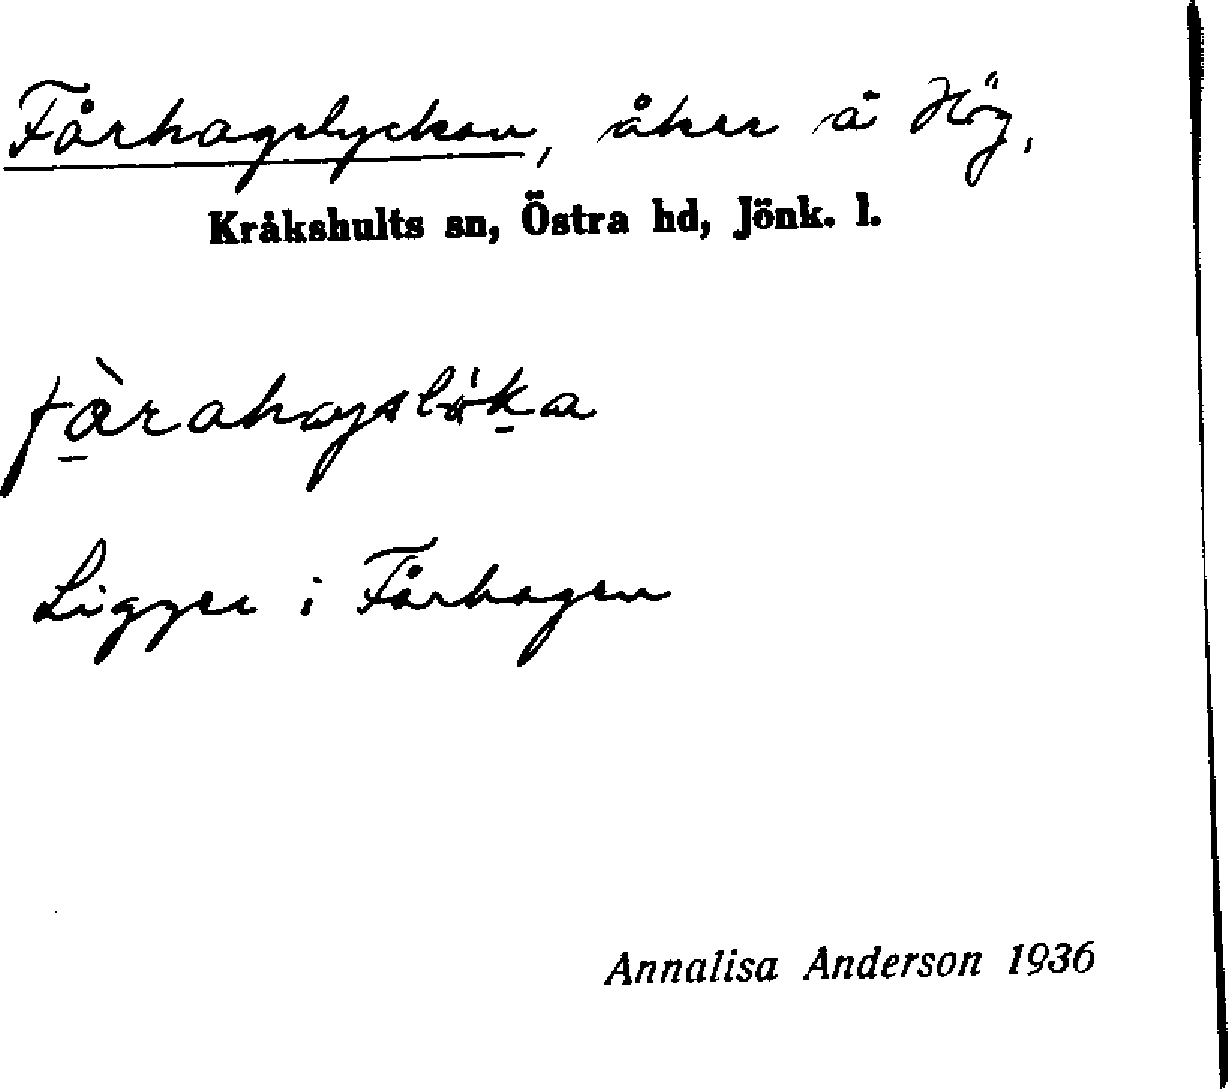 Fårhagslyckan, åker å Hög,
Kråkshults sn, Östra hd, Jönk. l.
Ligger i Fårhagen
Annalisa Anderson 1936